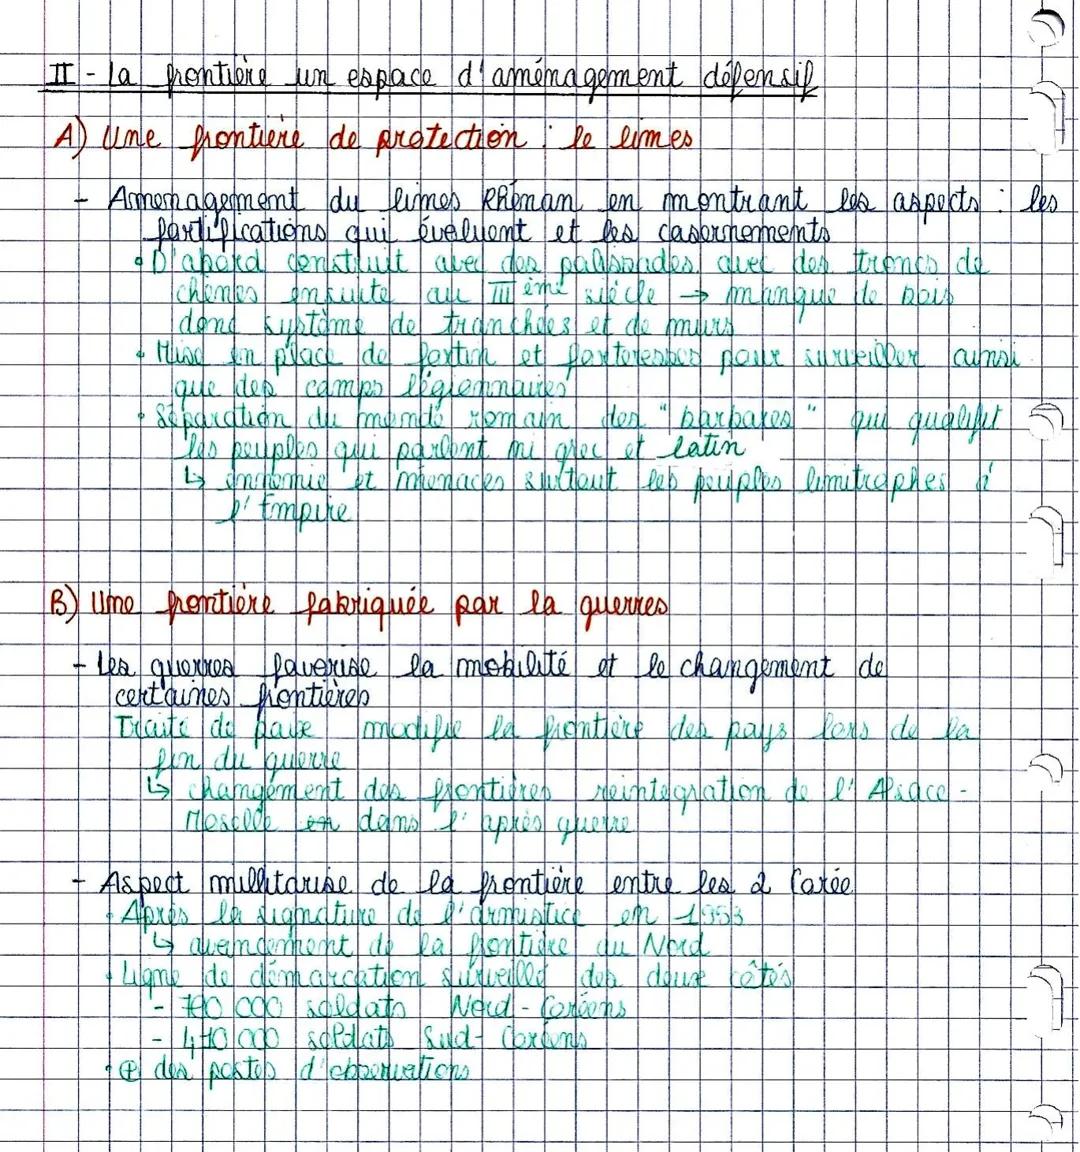 II - La frontière un espace d'aménagement défensif
A) Une frontière de protection : le limes
- Amenagement du limes Rhénan en montrant les aspects : les
fortifications qui évoluent et les casernements
• D'abord construit avec des palissades avec des troncs de
chênes ensuite au IIIème siècle → manque de bois
donc système de tranchées et de murs
• Mise en place de fortin et forteresses pour surveiller ainsi
que des camps légionnaires
• Séparation du monde romain des "barbares" qui qualifit
les peuples qui parlent ni grec et latin
↳ ennemie et menaces surtout les peuples limitraphes à
l'Empire
B) Une frontière fabriquée par la guerres
- Les guerres favorise la mobilité et le changement de
certaines frontières
Traité de paix modifie la frontière des pays lors de la
fin du guerre
↳ changement des frontières reintegration de l'Alsace -
Moselle dans l'après guerre
- Aspect millitarisé de la frontière entre les 2 Corée
• Après la signature de l'armistice en 1953
↳ avancement de la frontière au Nord
• Ligne de démarcation surveillé des deux côtés
- 700 000 soldats Nord - Coréens
- 410 000 soldats Sud - Coréens
• ⊕ des postes d'observations